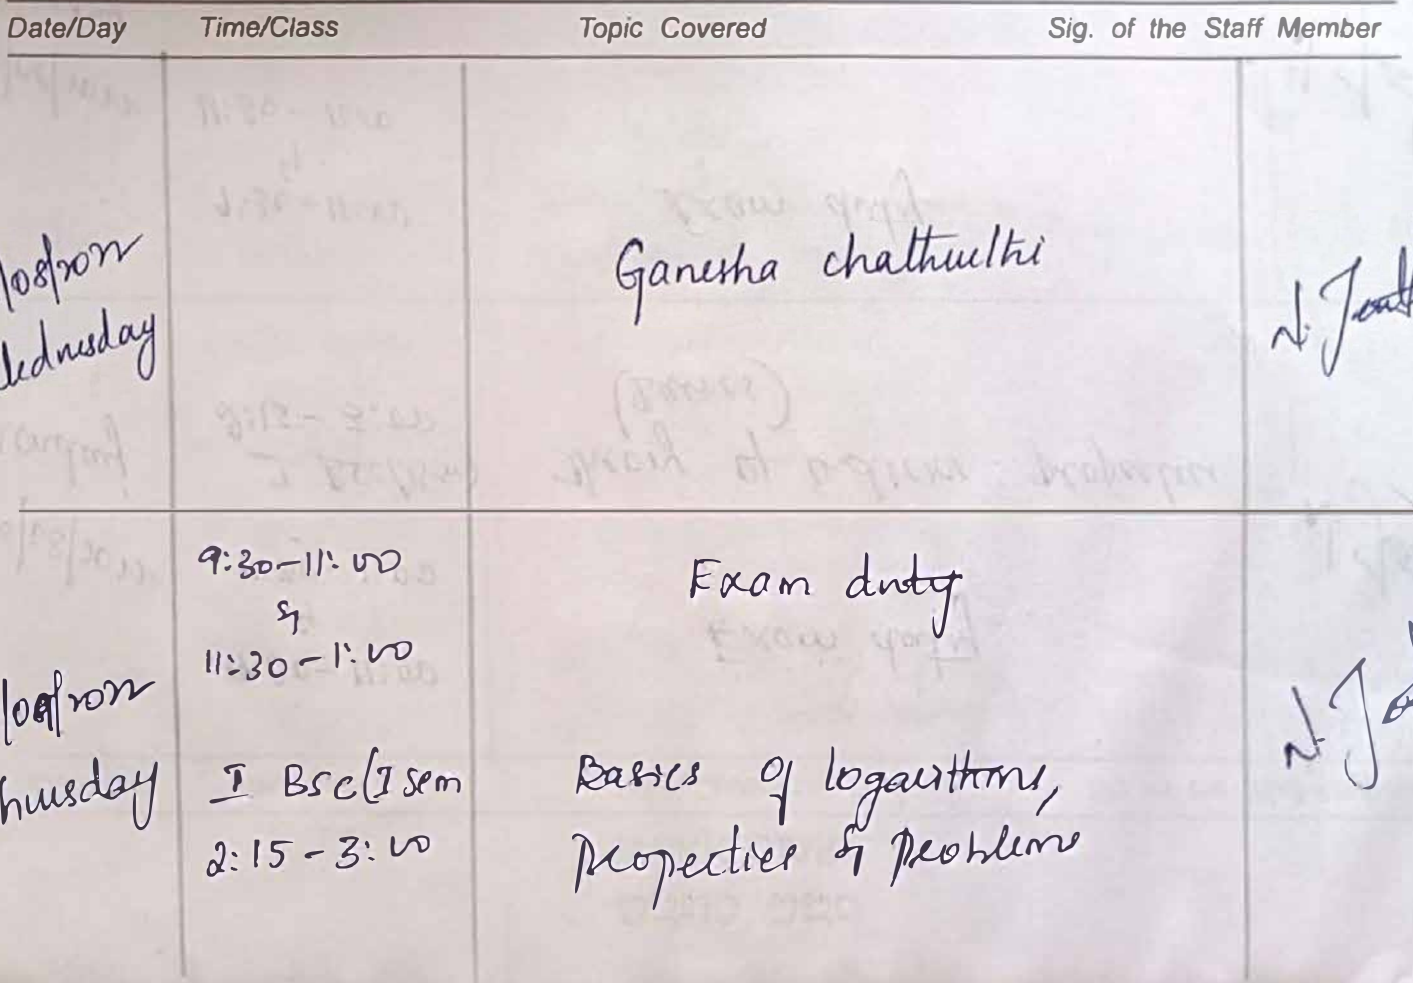 Date/Day Time/Class Topic Covered Sig. of the Staff Member
/08/2022
Wednesday
Ganesha chathurthi
N. Jeath
9:30-11:00
&
11:30-1:00
Exam duty
/09/2022
Thursday
N. J
I Bsc/I sem
2:15-3:00
Basics of logarithms,
Properties & Problems